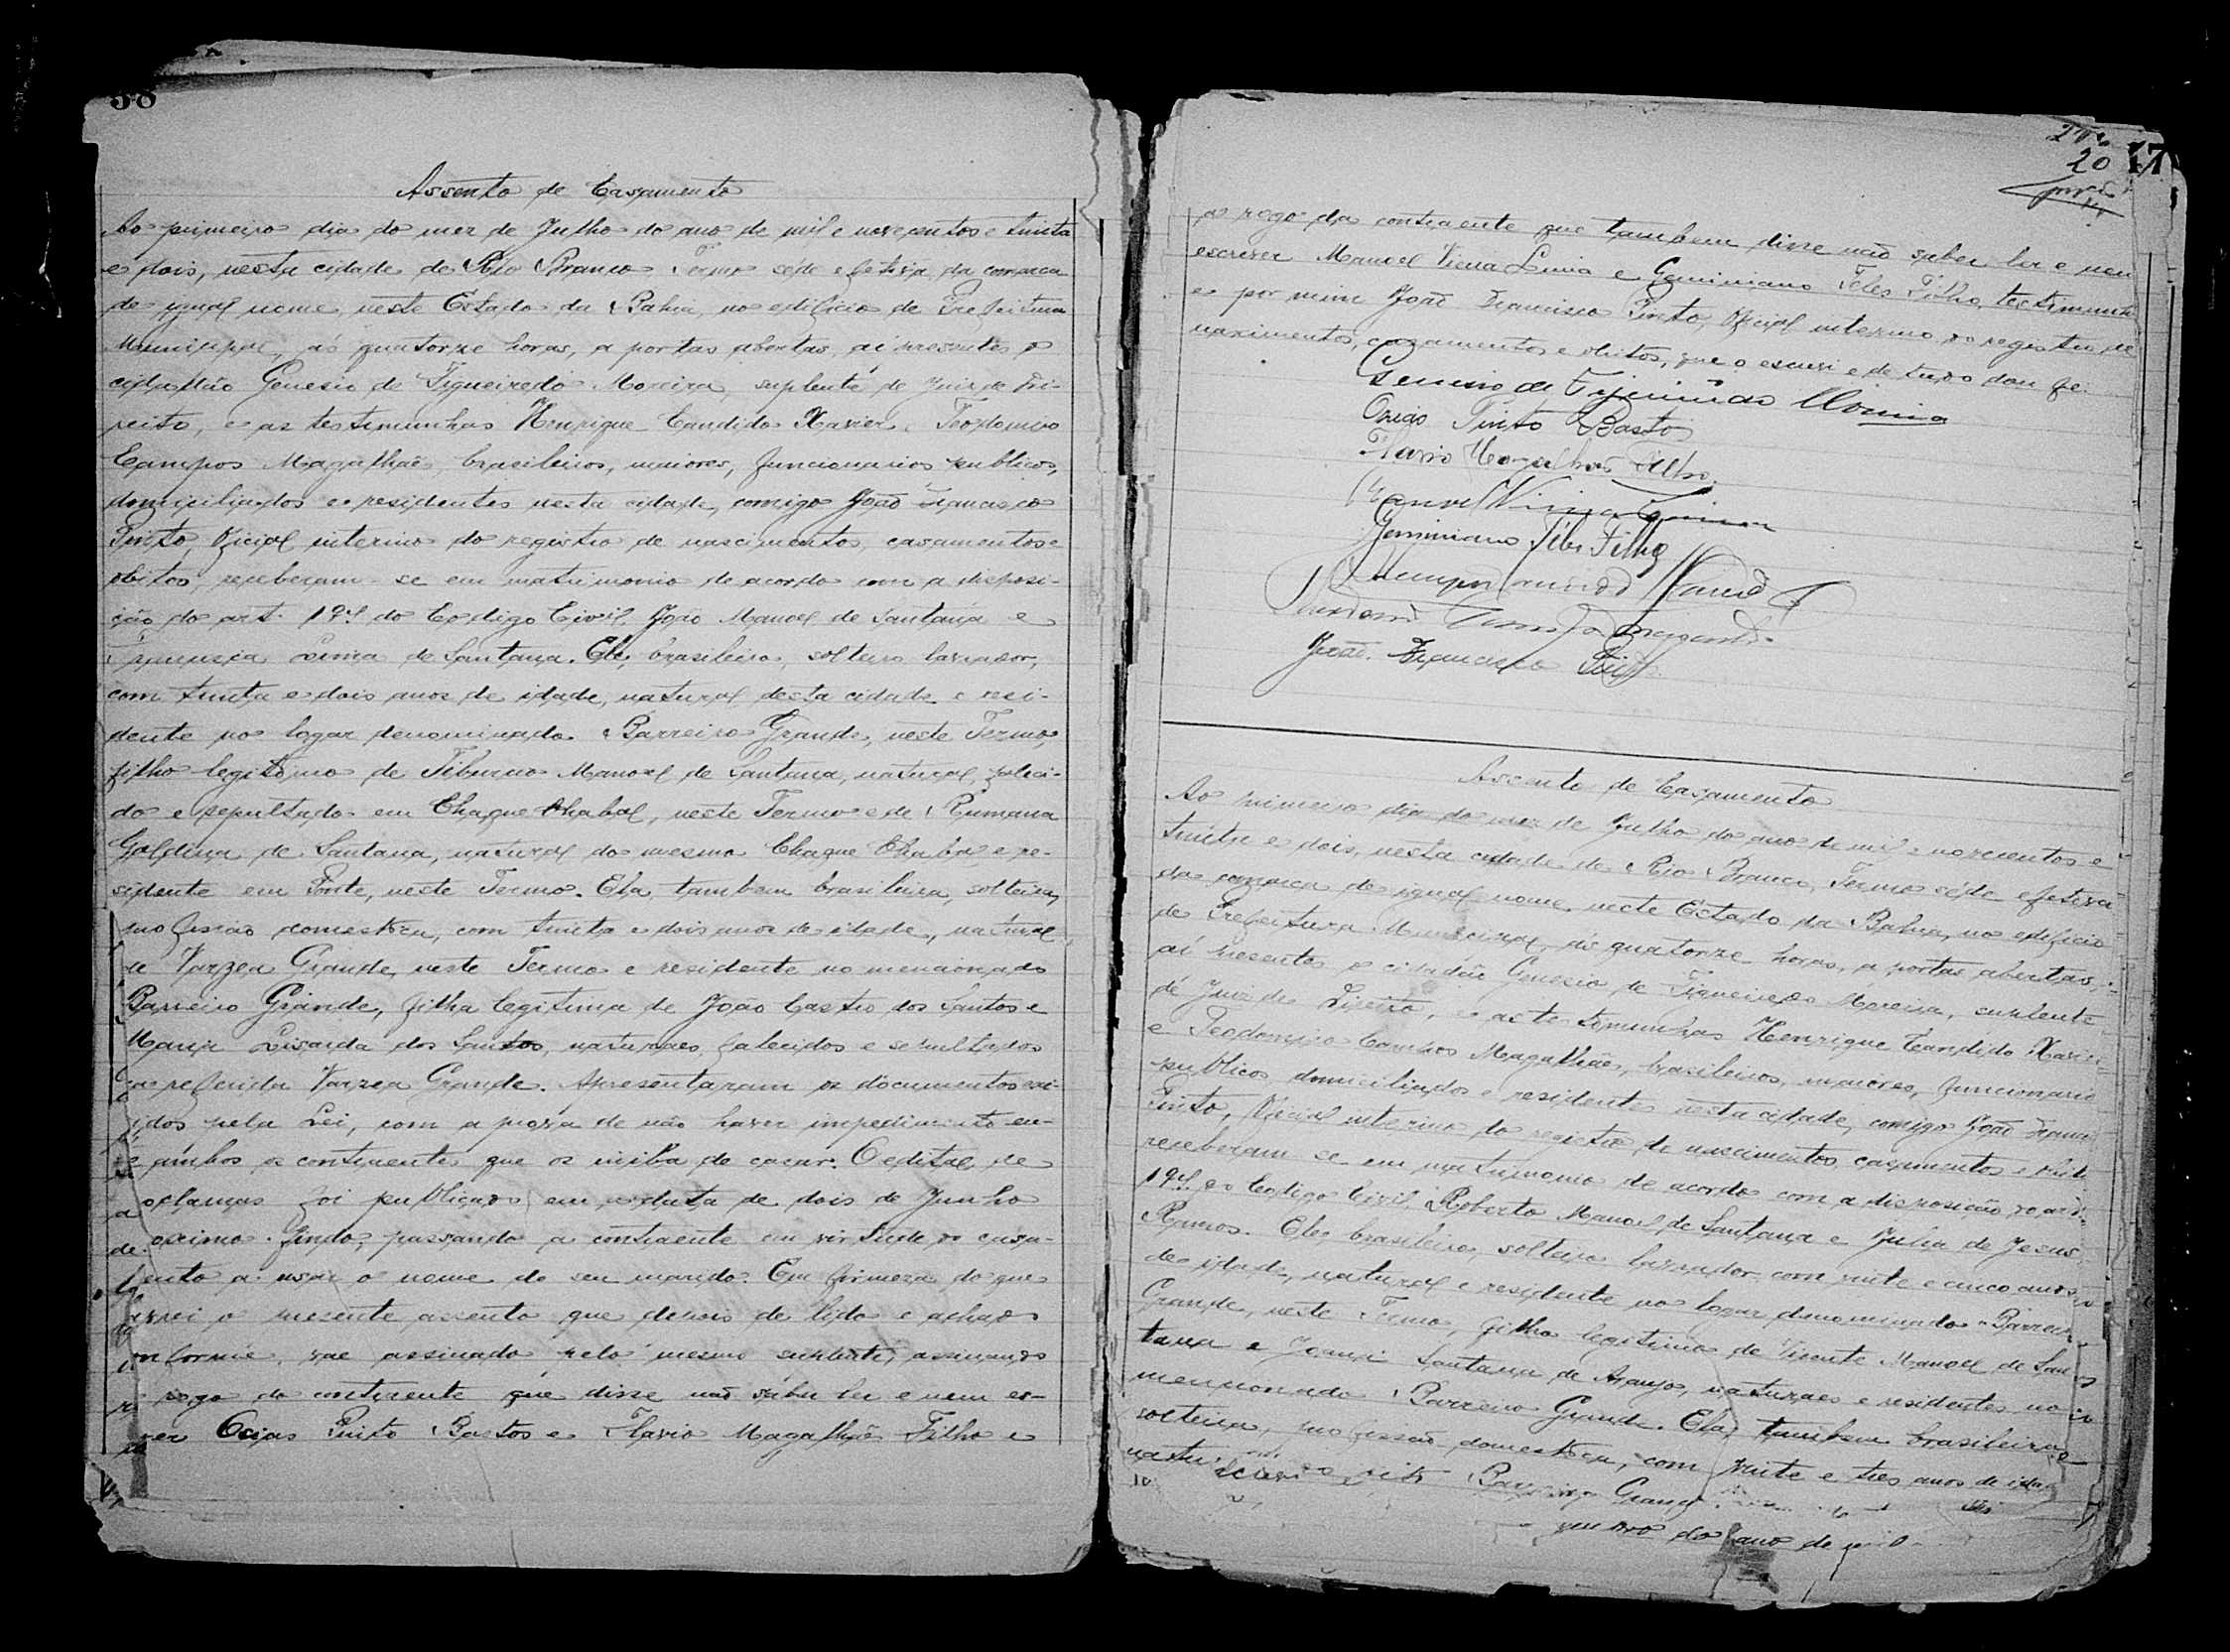 58
Assento de Casamento
Ao primeiro dia do mez de Julho do ano de mil e novecentos e trinta
e dois, nesta cidade de Rio Branco Termo séde efetiva da comarca
de igual nome, neste Estado da Bahia, no edificio de Prefeitura
Municipal, ás quatorze horas, a portas abertas, aí presentes o
cidadão Genesio de Figueiredo Moreira, suplente de Juiz de Di-
reito, e as testimunhas Henrique Candido Xavier, Teodomiro
Campos Magalhães, brasileiros, maiores, funcionarios publicos,
domiciliados e residentes nesta cidade, comigo João Francisco
Pinto, Oficial interino do registro de nascimentos, casamentos e
obitos, receberam-se em matrimonio de acordo com a disposi-
ção do art. 194 do Codigo Civil, João Manoel de Santana e
Lima de Santana. Ele, brasileiro, solteiro, lavrador,
com trinta e dois anos de idade, natural desta cidade e resi-
dente no logar denominado Barreiro Grande, neste Termo,
filho legitimo de Tiburcio Manoel de Santana, natural, faleci-
do e sepultado em Chaque Chabal, neste Termo e de Rumana
Galdina de Santana, natural do mesmo Chaque Chabal e re-
sidente em Ponte, neste Termo. Ela, tambem brasileira, solteira,
profissão domestica, com trinta e dois anos de idade, natural
de Varzea Grande, neste Termo e residente no mencionado
Barreiro Grande, filha legitima de João Castro dos Santos e
Maria Lisarda dos Santos, naturaes, falecidos e sepultados
na referida Varzea Grande. Apresentaram os documentos exi-
jidos pela Lei, com a prova de não haver impedimento en-
tre ambos os contraentes que os iniba de casar. O edital de
proclamas foi publicado em data de dois de Junho
proximo findo, passando a contraente em virtude do casa-
mento a usar o nome de seu marido. Em firmeza do que
lavrei o presente assento que depois de lido e achado
conforme, vae assinado pelo mesmo suplente, assinando
a rogo do contraente que disse não saber ler e nem es-
crever Osias Pinto Bastos e Flavio Magalhães Filho e
20
17
a rogo da contraente que tambem disse não saber ler e nem
escrever Manoel Vieira Lima e Geminiano Teles Filho, testimunh
e por mim João Francisco Pinto, Oficial interino do registro de
nascimentos, casamentos e obitos, que o escrevi e de tudo dou fé.
Genesio de Figueiredo Moreira
Osias Pinto Bastos
Flavio Magalhães Filho.
Manoel Vieira Lima
Geminiano Teles Filho
Henrique Candido Xavier
Teodomiro Campos Magalhães
João Francisco Pinto
Assento de Casamento
Ao primeiro dia do mez de Julho do ano de mil e novecentos e
trinta e dois, nesta cidade de Rio Branco, Termo séde efetiva
da comarca de igual nome, neste Estado da Bahia, no edificio
de Prefeitura Municipal, ás quatorze horas, a portas abertas,
aí presentes o cidadão Genesio de Figueiredo Moreira, suplente
de Juiz de Direito, e as testimunhas Henrique Candido Xavier
e Teodomiro Campos Magalhães, brasileiros, maiores, funcionario
publicos, domiciliados e residentes nesta cidade, comigo João Franci
Pinto, Oficial interino do registro de nascimentos, casamentos e obit
receberam se em matrimonio de acordo com a disposição do art.
194 do Codigo Civil, Roberto Manoel de Santana e Julia de Jesus
Ramos. Ele, brasileiro, solteiro, lavrador, com vinte e cinco anos
de idade, natural e residente no logar denominado Barreir
Grande, neste Termo, filho legitimo de Vicente Manoel de San
tana e Santana de Araujo, naturaes e residentes no
mencionado Barreiro Grande. Ela, tambem brasileira,
solteira, profissão domestica, com vinte e tres anos de idad
natu Barreiro Grand
do ano de mil